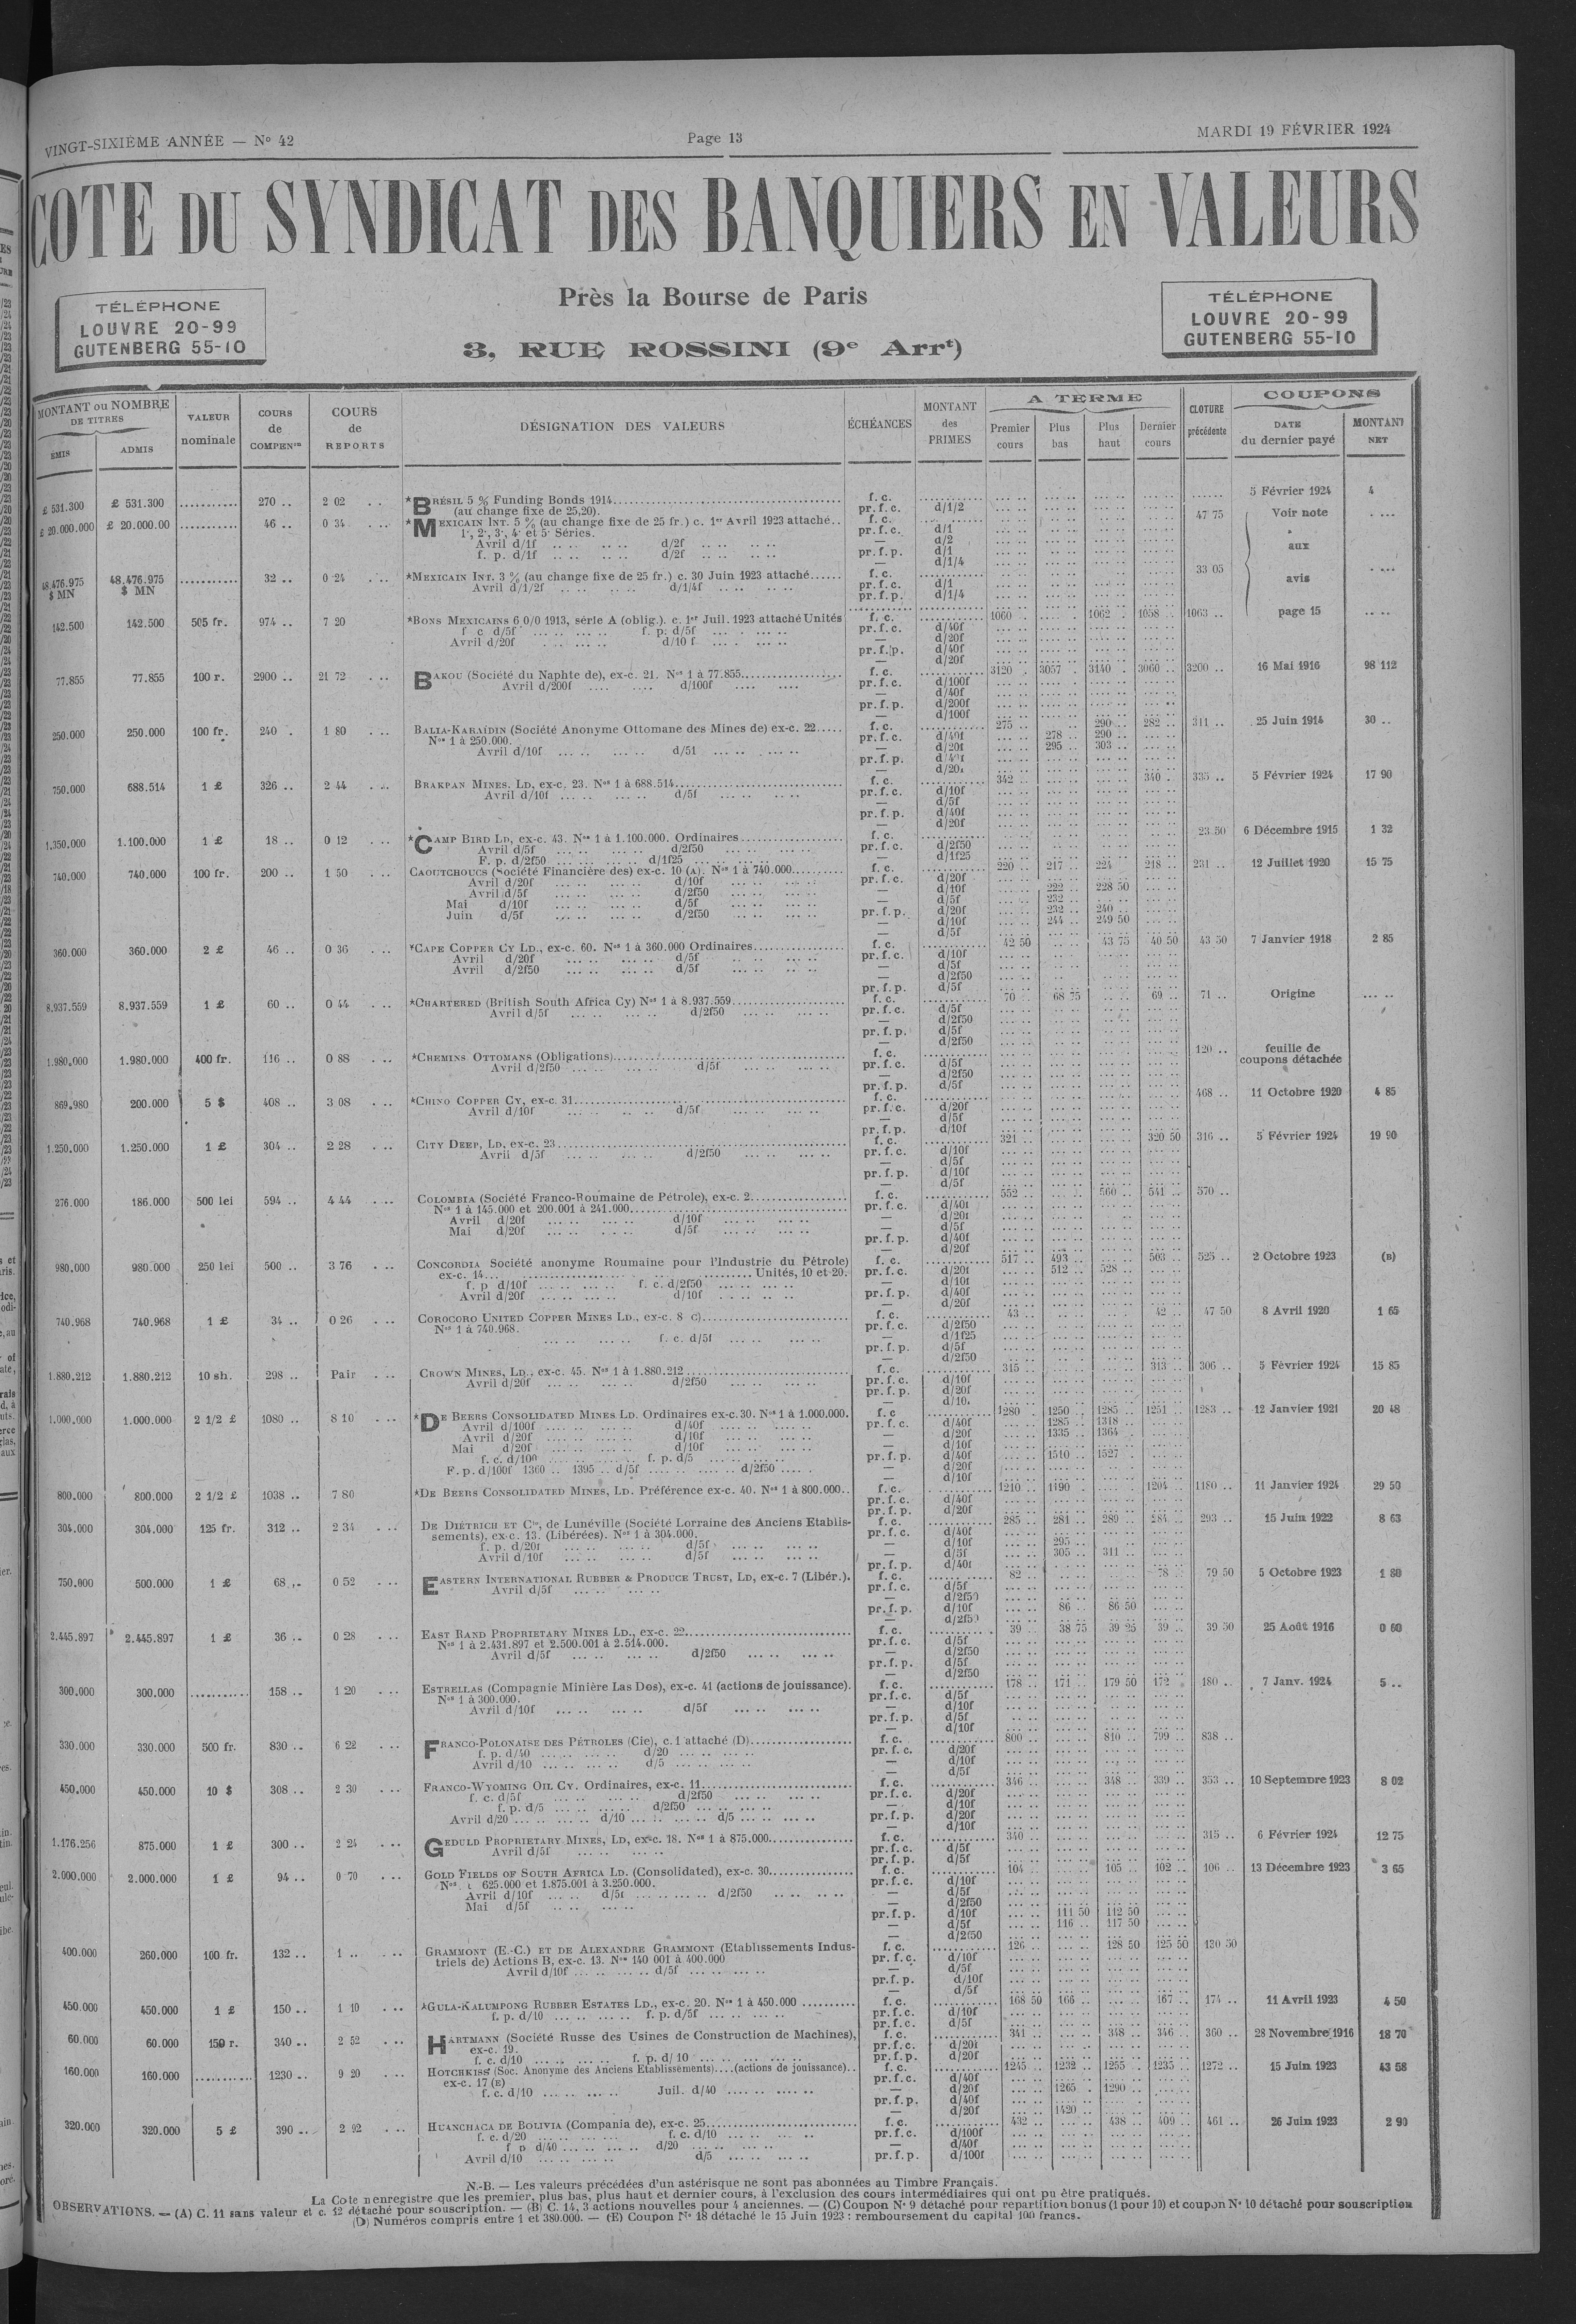 VINGT-SIXIÈME ANNÉE — N° 42
Page 13
MARDI 19 FÉVRIER 1924
COTE DU SYNDICAT DES BANQUIERS EN VALEURS
TÉLÉPHONE
LOUVRE 20-99
GUTENBERG 55-10
Près la Bourse de Paris
3, RUE ROSSINI (9e Arrt)
TÉLÉPHONE
LOUVRE 20-99
GUTENBERG 55-10
MONTANT ou NOMBRE DE TITRES
ÉMIS
ADMIS
VALEUR nominale
COURS de COMPENon
COURS de REPORTS
DÉSIGNATION DES VALEURS
ÉCHÉANCES
MONTANT des PRIMES
A TERME
Premier cours
Plus bas
Plus haut
Dernier cours
CLOTURE précédente
COUPONS
DATE du dernier payé
MONTANT NET
£ 531.300 £ 531.300 ........... 270 .. 2 02 .. *BRÉSIL 5 % Funding Bonds 1914 f. c. 5 Février 1924 4
(au change fixe de 25,20). pr. f. c. d/1/2
£ 20.000.000 £ 20.000.00 ........... 46 .. 0 34 *MEXICAIN INT. 5 % (au change fixe de 25 fr.) c. 1er Avril 1923 attaché.. f. c. 47 75 Voir note
1e, 2e, 3e, 4e et 5e Séries. pr. f. c. d/1
Avril d/1f d/2f — d/2
f. p. d/1f d/2f pr. f. p. d/1 aux
— d/1/4
48.476.975 $ MN 48.476.975 $ MN ........... 32 .. 0 24 *MEXICAIN INT. 3 % (au change fixe de 25 fr.) c. 30 Juin 1923 attaché f. c. 33 05 avis
Avril d/1/2f d/1/4f pr. f. c. d/1
pr. f. p. d/1/4
142.500 142.500 505 fr. 974 .. 7 20 *BONS MEXICAINS 6 0/0 1913, série A (oblig.). c. 1er Juil. 1923 attaché Unités f. c. 1060 1062 1058 1063 .. page 15
f c d/5f f. p. d/5f pr. f. c. d/40f
Avril d/20f d/10 f — d/20f
pr. f. p. d/40f
— d/20f
77.855 77.855 100 r. 2900 .. 21 72 BAKOU (Société du Naphte de), ex-c. 21. Nos 1 à 77.855 f. c. 3120 3057 3140 3060 3200 .. 16 Mai 1916 98 112
Avril d/200f d/100f pr. f. c. d/100f
— d/40f
pr. f. p. d/200f
— d/100f
250.000 250.000 100 fr. 240 . 1 80 BALIA-KARAÏDIN (Société Anonyme Ottomane des Mines de) ex-c. 22 f. c. 275 290 282 311 .. 25 Juin 1914 30 ..
Nos 1 à 250.000. pr. f. c. d/40f 278 290
Avril d/10f d/5f — d/20f 295 303
pr. f. p. d/40f
— d/20f
750.000 688.514 1 £ 326 .. 2 44 BRAKPAN MINES. LD, ex-c. 23. Nos 1 à 688.514 f. c. 342 340 335 .. 5 Février 1924 17 90
Avril d/10f d/5f pr. f. c. d/10f
— d/5f
pr. f. p. d/40f
— d/20f
1.350.000 1.100.000 1 £ 18 .. 0 12 *CAMP BIRD LD, ex-c. 43. Nos 1 à 1.100.000. Ordinaires f. c. 23 50 6 Décembre 1915 1 32
Avril d/5f d/2f50 pr. f. c. d/2f50
F. p. d/2f50 d/1f25 — d/1f25
740.000 740.000 100 fr. 200 .. 1 50 CAOUTCHOUCS (Société Financière des) ex-c. 10 (A). Nos 1 à 740.000 f. c. 220 217 224 218 231 .. 12 Juillet 1920 15 75
Avril d/20f d/10f pr. f. c. d/20f
Avril d/5f d/2f50 — d/10f 222 228 50
Mai d/10f d/5f — d/5f 232
Juin d/5f d/2f50 pr. f. p. d/20f 232 240
— d/10f 244 249 50
— d/5f
360.000 360.000 2 £ 46 .. 0 36 *CAPE COPPER CY LD., ex-c. 60. Nos 1 à 360.000 Ordinaires f. c. 42 50 43 75 40 50 43 50 7 Janvier 1918 2 85
Avril d/20f d/5f pr. f. c. d/10f
Avril d/2f50 d/5f — d/5f
— d/2f50
pr. f. p. d/5f
8.937.559 8.937.559 1 £ 60 .. 0 44 *CHARTERED (British South Africa Cy) Nos 1 à 8.937.559 f. c. 70 68 75 69 71 .. Origine
Avril d/5f d/2f50 pr. f. c. d/5f
— d/2f50
pr. f. p. d/5f
— d/2f50
1.980.000 1.980.000 400 fr. 116 .. 0 88 *CHEMINS OTTOMANS (Obligations) f. c. 120 .. feuille de coupons détachée
Avril d/2f50 d/5f pr. f. c. d/5f
— d/2f50
pr. f. p. d/5f
869.980 200.000 5 $ 408 .. 3 08 *CHINO COPPER CY, ex-c. 31 f. c. 468 .. 11 Octobre 1920 4 85
Avril d/10f d/5f pr. f. c. d/20f
— d/5f
pr. f. p. d/10f
1.250.000 1.250.000 1 £ 304 .. 2 28 CITY DEEP, LD, ex-c. 23 f. c. 321 320 50 316 .. 5 Février 1924 19 90
Avril d/5f d/2f50 pr. f. c. d/10f
— d/5f
pr. f. p. d/10f
— d/5f
276.000 186.000 500 lei 594 .. 4 44 COLOMBIA (Société Franco-Roumaine de Pétrole), ex-c. 2 f. c. 552 560 541 570 ..
Nos 1 à 145.000 et 200.001 à 241.000 pr. f. c. d/40f
Avril d/20f d/10f — d/20f
Mai d/20f d/5f — d/5f
pr. f. p. d/40f
— d/20f
980.000 980.000 250 lei 500 .. 3 76 CONCORDIA Société anonyme Roumaine pour l'Industrie du Pétrole) f. c. 517 493 503 525 .. 2 Octobre 1923 (B)
ex-c. 14 Unités, 10 et 20. pr. f. c. d/20f 512 528
f. p d/10f f. c. d/2f50 — d/10f
Avril d/20f d/10f pr. f. p. d/40f
— d/20f
740.968 740.968 1 £ 34 .. 0 26 COROCORO UNITED COPPER MINES LD., ex-c. 8 C) f. c. 43 42 47 50 8 Avril 1920 1 65
Nos 1 à 740.968. pr. f. c. d/2f50
f. c. d/5f — d/1f25
pr. f. p. d/5f
— d/2f50
1.880.212 1.880.212 10 sh. 298 .. Pair CROWN MINES, LD., ex-c. 45. Nos 1 à 1.880.212 f. c. 315 313 306 .. 5 Février 1924 15 85
Avril d/20f d/2f50 pr. f. c. d/10f
pr. f. p. d/20f
— d/10.
1.000.000 1.000.000 2 1/2 £ 1080 .. 8 10 *DE BEERS CONSOLIDATED MINES LD. Ordinaires ex-c. 30. Nos 1 à 1.000.000. f. c 1280 1250 1285 1251 1283 .. 12 Janvier 1921 20 48
Avril d/100f d/40f pr. f. c. d/40f 1285 1318
Avril d/20f d/10f — d/20f 1335 1364
Mai d/20f d/10f — d/10f
f. c. d/100 f. p. d/5 pr. f. p. d/40f 1510 1527
F. p. d/100f 1360 .. 1395 .. d/5f d/2f50 — d/20f
— d/10f
800.000 800.000 2 1/2 £ 1038 .. 7 80 *DE BEERS CONSOLIDATED MINES, LD. Préférence ex-c. 40. Nos 1 à 800.000.. f. c. 1210 1190 1204 1180 .. 11 Janvier 1924 29 50
pr. f. c. d/40f
pr. f. p. d/20f
304.000 304.000 125 fr. 312 .. 2 34 DE DIÉTRICH ET Cie, de Lunéville (Société Lorraine des Anciens Etablis- f. c. 285 281 289 284 293 .. 15 Juin 1922 8 63
sements). ex-c. 13. (Libérées). Nos 1 à 304.000. pr. f. c. d/40f
f. p. d/20f d/5f — d/10f 295
Avril d/10f d/5f — d/5f 305 311
pr. f. p. d/40f
750.000 500.000 1 £ 68 .. 0 52 EASTERN INTERNATIONAL RUBBER & PRODUCE TRUST, LD, ex-c. 7 (Libér.). f. c. 82 78 79 50 5 Octobre 1923 1 80
Avril d/5f pr. f. c. d/5f
— d/2f50
pr. f. p. d/10f 86 86 50
— d/2f50
2.445.897 2.445.897 1 £ 36 .. 0 28 EAST RAND PROPRIETARY MINES LD., ex-c. 22 f. c. 39 38 75 39 25 39 39 50 25 Août 1916 0 60
Nos 1 à 2.431.897 et 2.500.001 à 2.514.000. pr. f. c. d/5f
Avril d/5f d/2f50 — d/2f50
pr. f. p. d/5f
— d/2f50
300.000 300.000 ........... 158 .. 1 20 ESTRELLAS (Compagnie Minière Las Dos), ex-c. 41 (actions de jouissance). f. c. 178 171 179 50 172 180 .. 7 Janv. 1924 5 ..
Nos 1 à 300.000. pr. f. c. d/5f
Avril d/10f d/5f — d/10f
pr. f. p. d/5f
— d/10f
330.000 330.000 500 fr. 830 .. 6 22 FRANCO-POLONAISE DES PÉTROLES (Cie), c. 1 attaché (D) f. c. 800 810 799 838 ..
f. p. d/40 d/20 pr. f. c. d/20f
Avril d/10 d/5 — d/10f
— d/5f
450.000 450.000 10 $ 308 .. 2 30 FRANCO-WYOMING OIL CY. Ordinaires, ex-c. 11 f. c. 346 348 339 353 .. 10 Septembre 1923 8 02
f. c. d/5f d/2f50 pr. f. c. d/20f
f. p. d/5 d/2f50 — d/10f
Avril d/20 d/10 d/5 pr. f. p. d/20f
— d/10f
1.176.256 875.000 1 £ 300 .. 2 24 GEDULD PROPRIETARY MINES, LD, ex-c. 18. Nos 1 à 875.000 f. c. 340 315 .. 6 Février 1924 12 75
Avril d/5f pr. f. c. d/5f
pr. f. p. d/5f
2.000.000 2.000.000 1 £ 94 .. 0 70 GOLD FIELDS OF SOUTH AFRICA LD. (Consolidated), ex-c. 30 f. c. 104 105 102 106 .. 13 Décembre 1923 3 65
Nos 1 625.000 et 1.875.001 à 3.250.000. pr. f. c. d/10f
Avril d/10f d/5f d/2f50 — d/5f
Mai d/5f — d/2f50
pr. f. p. d/10f 111 50 112 50
— d/5f 116 117 50
— d/2f50
400.000 260.000 100 fr. 132 .. 1 .. GRAMMONT (E.-C.) ET DE ALEXANDRE GRAMMONT (Etablissements Indus- f. c. 126 128 50 125 50 130 50
triels de) Actions B, ex-c. 13. Nos 140 001 à 400.000 pr. f. c. d/10f
Avril d/10f d/5f — d/5f
pr. f. p. d/10f
— d/5f
450.000 450.000 1 £ 150 .. 1 10 *GULA-KALUMPONG RUBBER ESTATES LD., ex-c. 20. Nos 1 à 450.000 f. c. 168 50 166 167 174 .. 11 Avril 1923 4 50
f. p. d/10 f. p. d/5f pr. f. c. d/10f
pr. f. c. d/5f
60.000 60.000 150 r. 340 .. 2 52 HARTMANN (Société Russe des Usines de Construction de Machines), f. c. 341 348 346 360 .. 28 Novembre 1916 18 70
ex-c. 19. pr. f. c. d/20f
f. c. d/10 f. p. d/10 pr. f. p. d/20f
160.000 160.000 ........... 1230 .. 9 20 HOTCHKISS (Soc. Anonyme des Anciens Etablissements)....(actions de jouissance).. f. c. 1245 1232 1255 1235 1272 .. 15 Juin 1923 43 58
ex-c. 17 (E) pr. f. c. d/40f
f. c. d/10 Juil. d/40 — d/20f 1265 1290
pr. f. p. d/40f
— d/20f 1420
320.000 320.000 5 £ 390 .. 2 92 HUANCHACA DE BOLIVIA (Compania de), ex-c. 25 f. c. 432 438 409 461 .. 26 Juin 1923 2 90
f. c. d/20 f. c. d/10 pr. f. c. d/100f
f p d/40 d/20 — d/40f
Avril d/10 d/5 pr. f. p. d/100f
N.-B. — Les valeurs précédées d'un astérisque ne sont pas abonnées au Timbre Français.
La Cote n enregistre que les premier, plus bas, plus haut et dernier cours, à l'exclusion des cours intermédiaires qui ont pu être pratiqués.
OBSERVATIONS. — (A) C. 11 sans valeur et c. 12 détaché pour souscription. — (B) C. 14, 3 actions nouvelles pour 4 anciennes. — (C) Coupon N° 9 détaché pour repartition bonus (1 pour 10) et coupon N° 10 détaché pour souscription
(D) Numéros compris entre 1 et 380.000. — (E) Coupon N° 18 détaché le 15 Juin 1923 : remboursement du capital 100 francs.